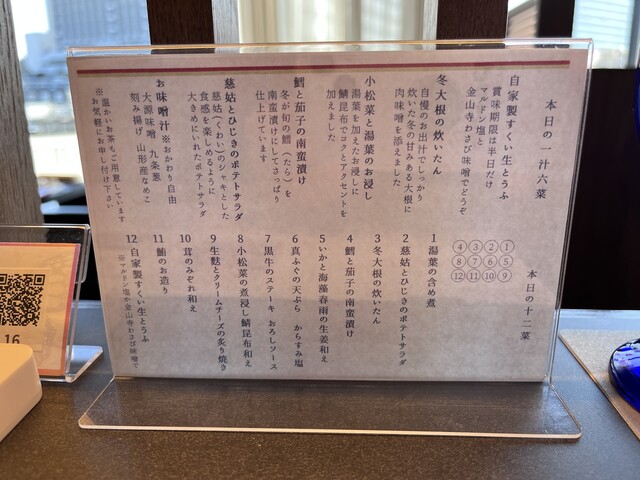 本日の一汁六菜
自家製すくい生とうふ
賞味期限は半日だけ
マルドン塩と
金山寺わさび味噌でどうぞ
冬大根の炊いたん
自慢のお出汁でしっかり
炊いた冬の甘みある大根に
肉味噌を添えました
小松菜と湯葉のお浸し
湯葉を加えたお浸しに
鯖昆布でコクとアクセントを
加えました
鱈と茄子の南蛮漬け
冬が旬の鱈（たら）を
南蛮漬けにしてさっぱり
仕上げています
慈姑とひじきのポテトサラダ
慈姑（くわい）のシャキとした
食感を楽しめるように
大きめにいれたポテトサラダ
お味噌汁※おかわり自由
大源味噌 九条葱
刻み揚げ 山形産なめこ
※温かいお茶もご用意しています
お気軽にお申し付け下さい
本日の十二菜
④③②①
⑧⑦⑥⑤
⑫⑪⑩⑨
1 湯葉の含め煮
2 慈姑とひじきのポテトサラダ
3 冬大根の炊いたん
4 鱈と茄子の南蛮漬け
5 いかと海藻春雨の生姜和え
6 真ふぐの天ぷら からすみ塩
7 黒牛のステーキ おろしソース
8 小松菜の煮浸し鯖昆布和え
9 生麩とクリームチーズの炙り焼き
10 茸のみぞれ和え
11 鮪のお造り
12 自家製すくい生とうふ
※マルドン塩か金山寺わさび味噌で
16